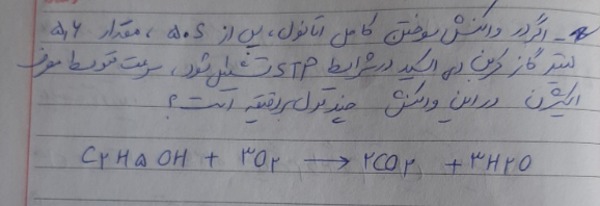 - اگر در واکنش سوختن کامل اتانول، پس از ۵۰s ، مقدار ۵,۶
لیتر گاز کربن دی اکسید در شرایط STP تشکیل شود، سرعت متوسط مصرف
اکسیژن در این واکنش چند مول بر دقیقه است؟
C۲H۵OH + ۳O۲ ⟶ ۲CO۲ + ۳H۲O